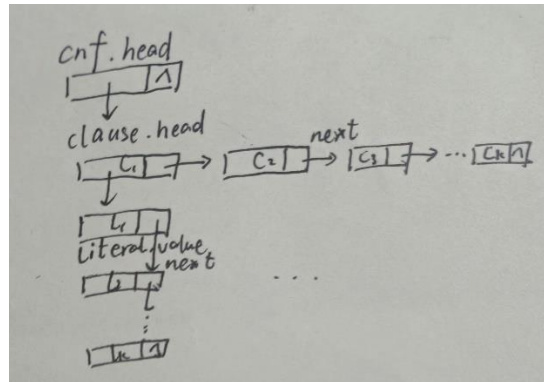 cnf.head
∧
clause.head
next
C₁ C₂ C₃ ... Cₖ ∧
L₁
literal.value
next
L₂
...
⋮
Lₖ ∧